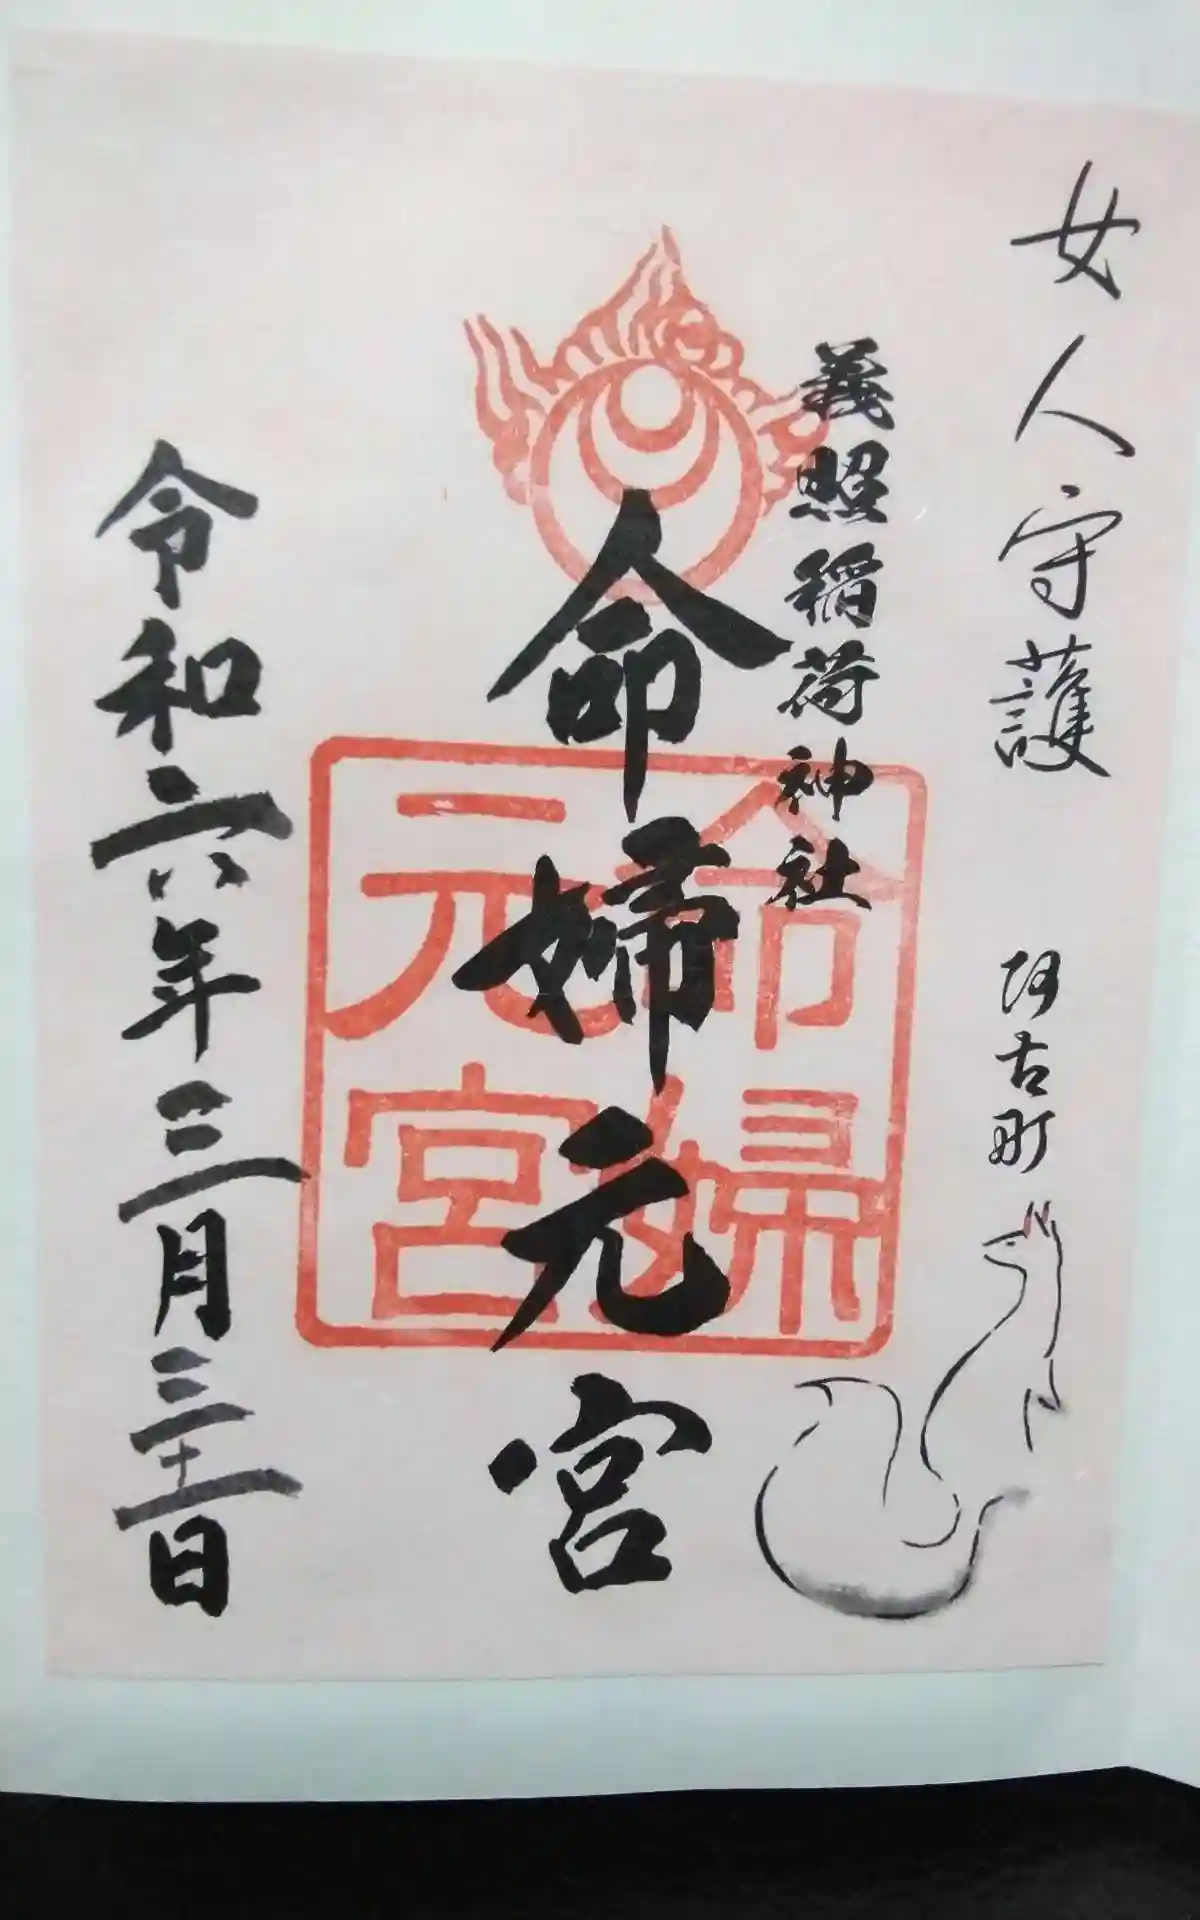 女人守護 阿古町
義照稲荷神社
命婦元宮
命婦
元宮
令和六年三月三十一日